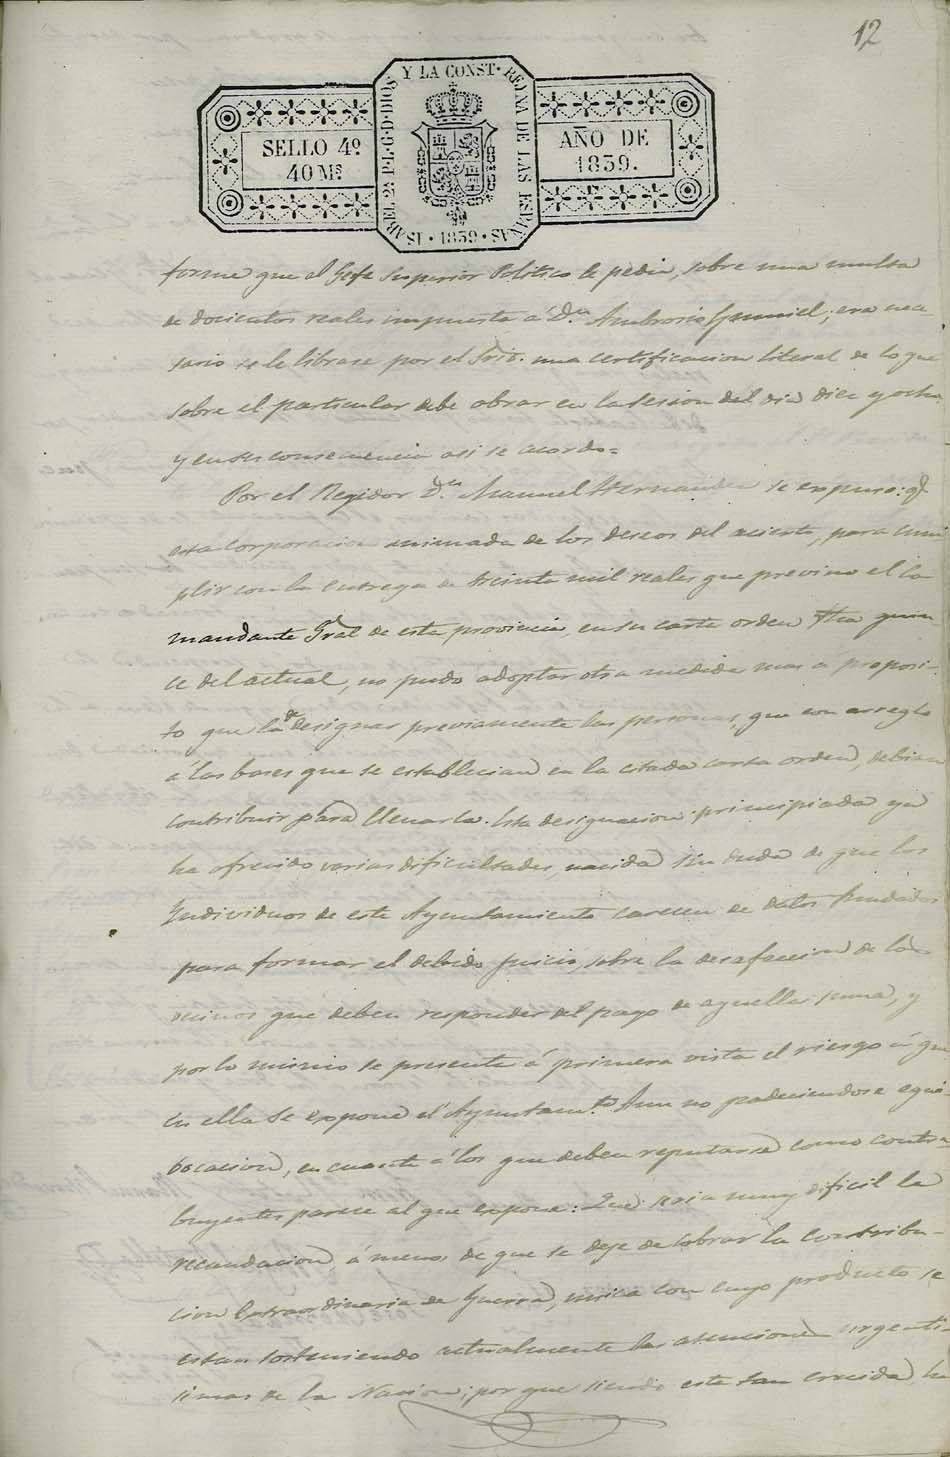 12
SELLO 4º
40 Mˢ.
ISABEL 2ª P.L.G.D DIOS Y LA CONST. REYNA DE LAS ESPAÑAS
1839
AÑO DE
1839.
forme que el Gefe Superior Politico le pedia, sobre una multa
de docientos reales impuesta á Dⁿ Ambrosio; era nece
sario se le librase por el Srio. una certificacion literal de lo que
sobre el particular debe obrar en la sesion del dia diez y ocho,
y en su consecuencia asi se acordo=
Por el Regidor Dⁿ Manuel Hernandez se expuso: q.ᵉ
esta corporacion animada de los deseos del acierto, para cum
plir con la entrega de treinta mil reales que previno el Co
mandante Gral de esta provincia, en su carta orden fha quin
ce del actual, no pudo adoptar otra medida mas á proposi-
to que la de designar previamente las personas, que con arreglo
á las bases que se establecian en la citada carta orden, debian
contribuir para llenarla. Esta designacion principiada ya
ha ofrecido varias dificultades, nacidas sin duda de que los
Individuos de este Ayuntamiento carecen de datos fundados
para formar el debido juicio, sobre la desafeccion de los
vecinos que deben responder del pago de aquella suma, y
por lo mismo se presenta á primera vista el riesgo á que
en ella se expone el Ayuntam.ᵗᵒ Aun no padeciendose equi-
bocacion, en cuanto á los que deben reputarse como contri-
buyentes parece al que expone: Que seria muy dificil la
recaudacion á menos de que se deje de cobrar la contribu-
cion extraordinaria de Guerra, unica con cuyo producto se
estan sosteniendo actualmente las atenciones urgenti-
simas de la Nacion; por que siendo esta tan crecida, ha